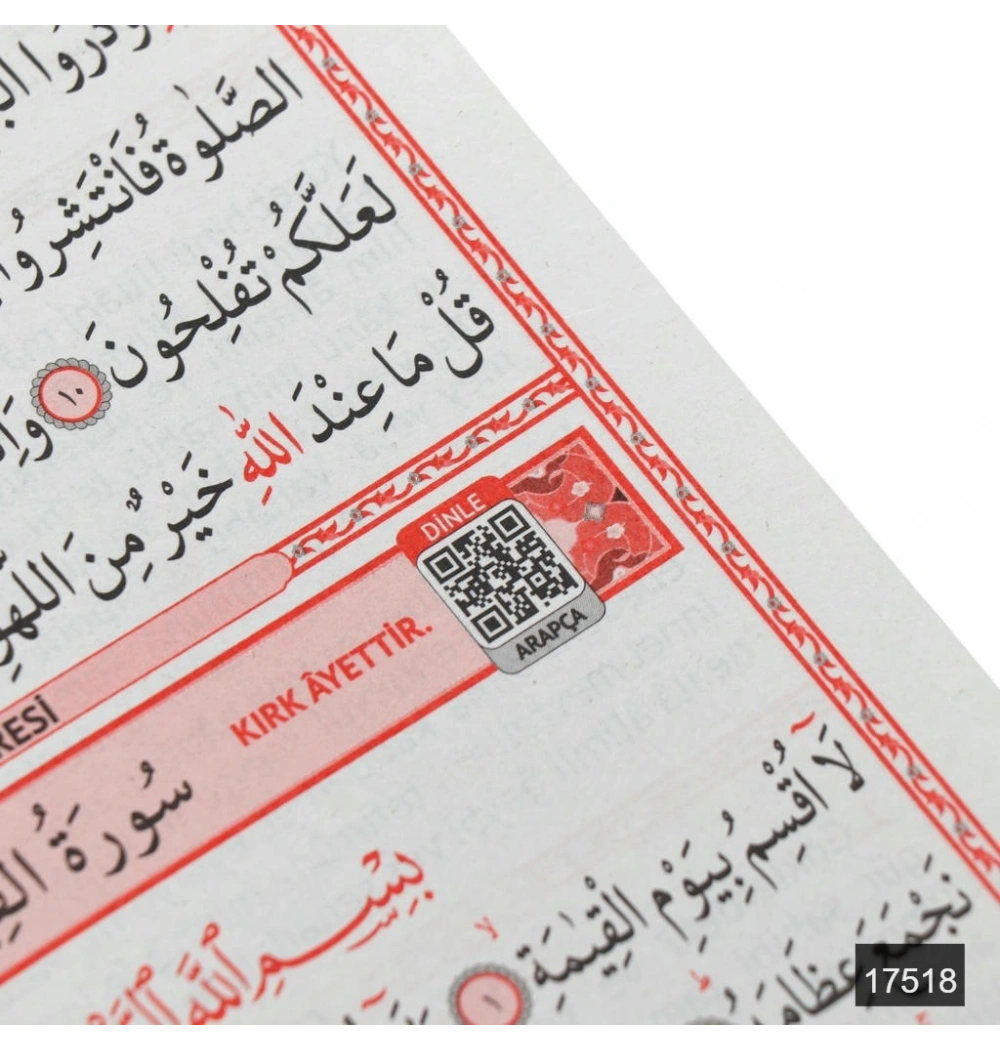 الصَّلٰوةُ فَانْتَشِرُوا
لَعَلَّكُمْ تُفْلِحُونَ ١٠
قُلْ مَا عِنْدَ اللّٰهِ خَيْرٌ مِنَ اللَّهْوِ
DİNLE
ARAPÇA
KIRK ÂYETTİR.
سُورَةُ
بِسْمِ اللّٰهِ
لَٓا اُقْسِمُ بِيَوْمِ الْقِيٰمَةِ ١
نَجْمَعَ عِظَامَهُ
17518